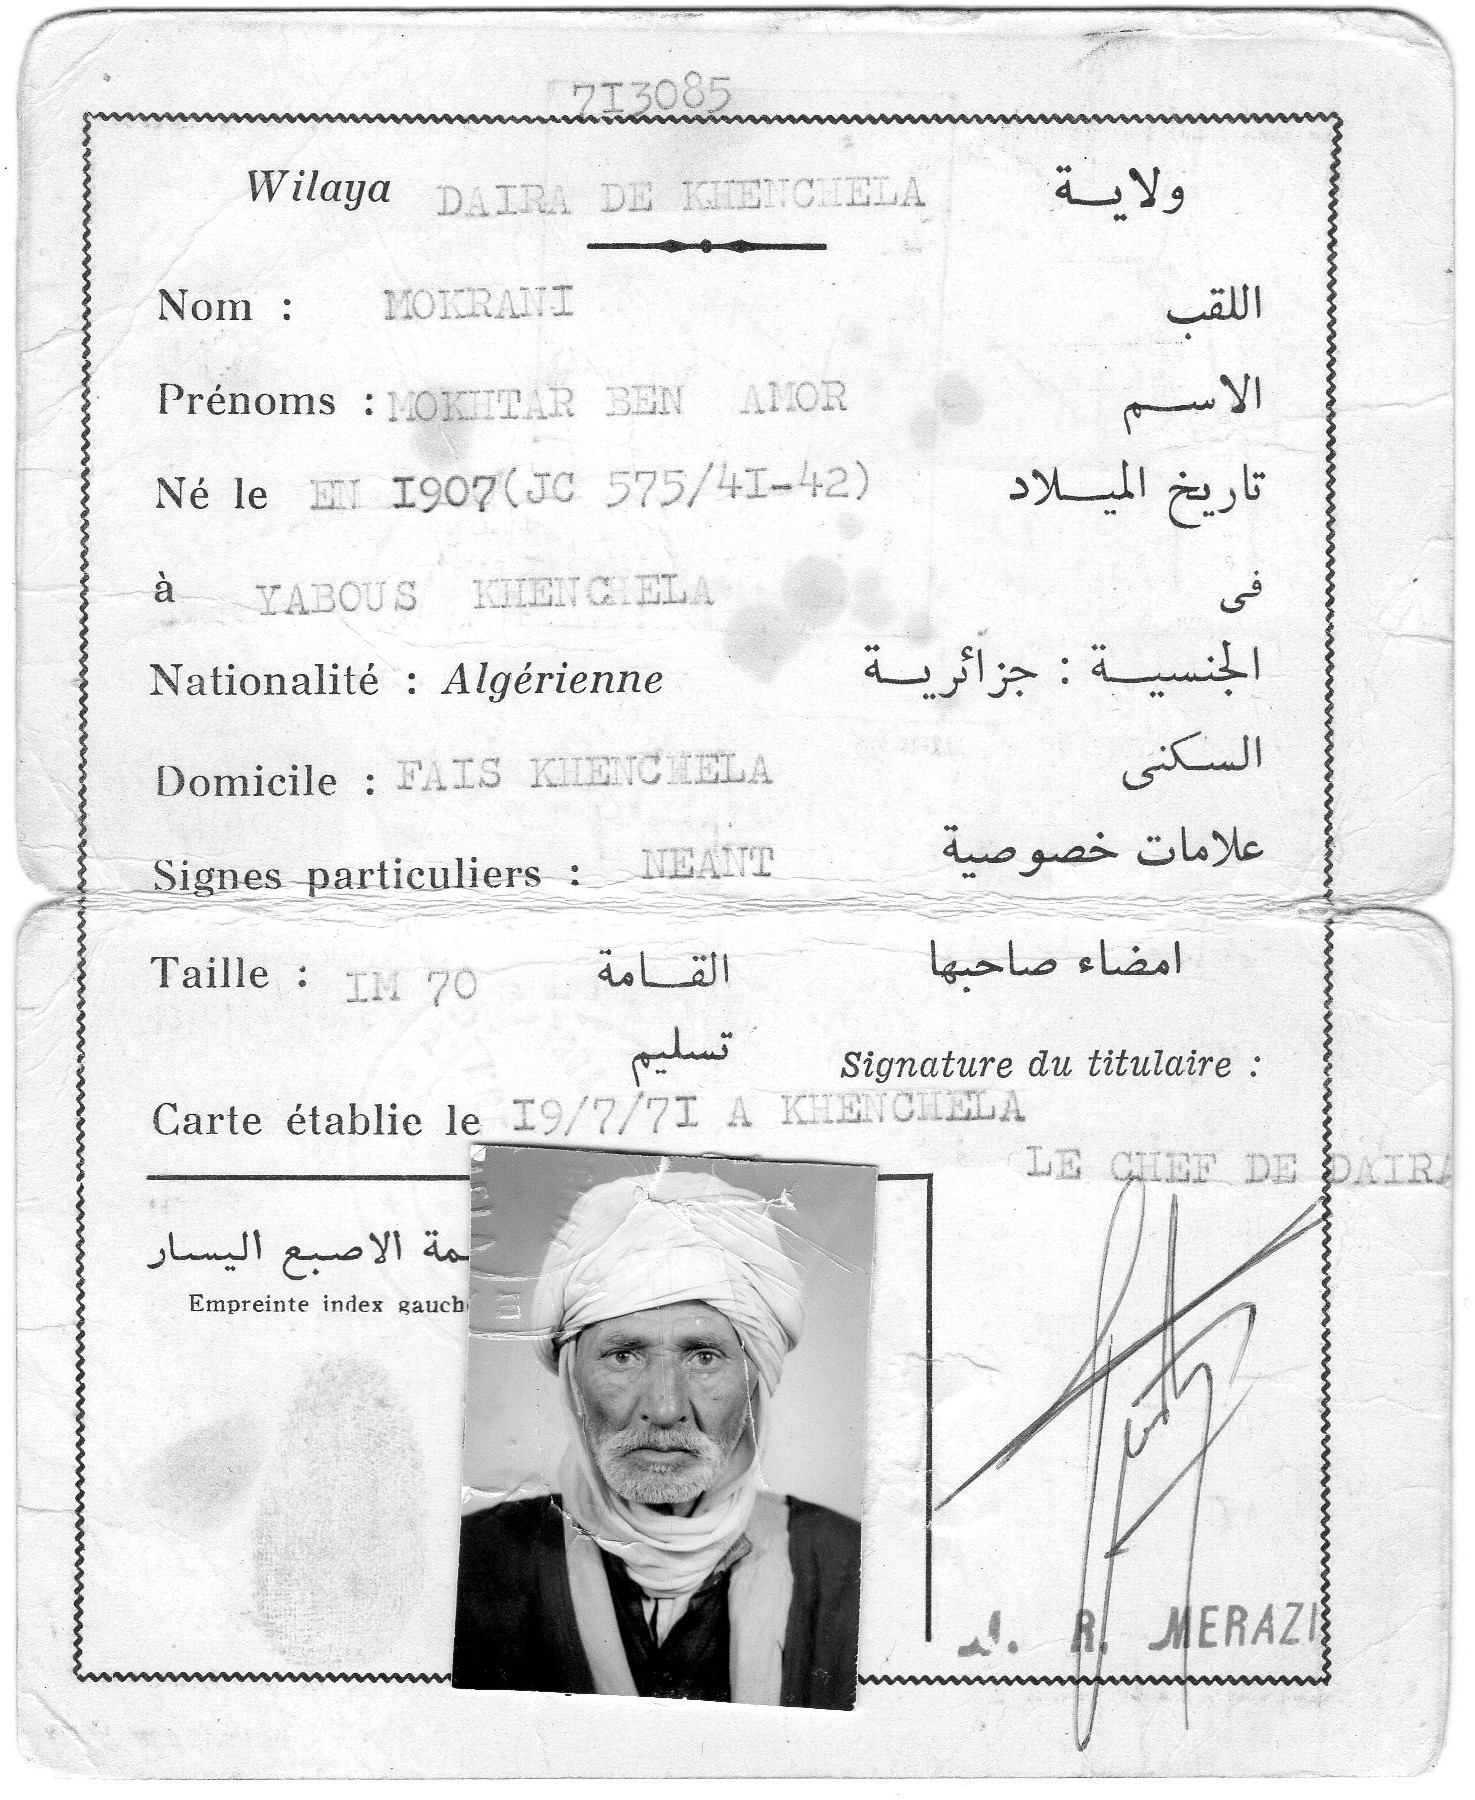 7I3085
Wilaya DAIRA DE KHENCHELA ولايـة
Nom : MOKRANI اللقب
Prénoms : MOKHTAR BEN AMOR الاسـم
Né le EN I907(JC 575/4I-42) تاريخ الميـلاد
à YABOUS KHENCHELA فى
Nationalité : Algérienne الجنسيـة : جزائريـة
Domicile : FAIS KHENCHELA السكنى
Signes particuliers : NEANT علامات خصوصية
Taille : IM 70 القـامة امضاء صاحبها
تسليم
Signature du titulaire :
Carte établie le I9/7/7I A KHENCHELA
LE CHEF DE DAIRA
الاصبع اليسار
Empreinte index gauche
R. MERAZI